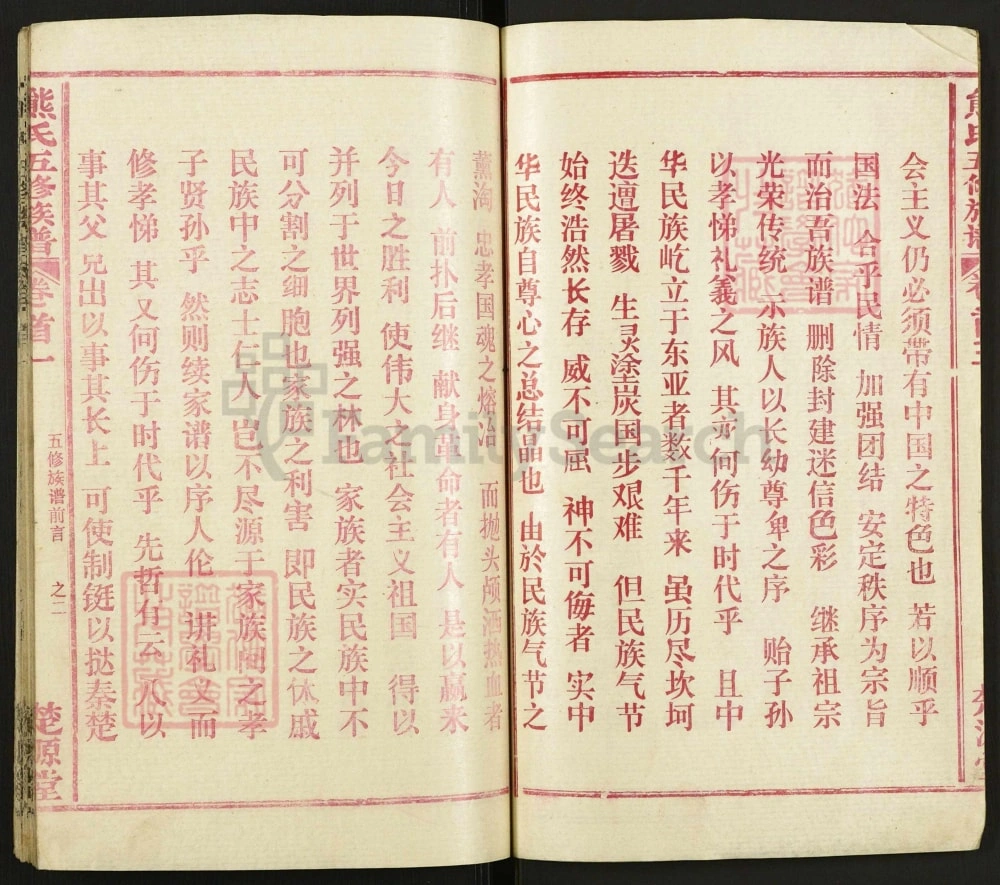 会主义仍必须带有中国之特色也 若以顺乎
国法 合乎民情 加强团结 安定秩序为宗旨
而治吾族谱 删除封建迷信色彩 继承祖宗
光荣传统 示族人以长幼尊卑之序 贻子孙
以孝悌礼義之风 其亦何伤于时代乎 且中
华民族屹立于东亚者数千年来 虽历尽坎坷
迭遭屠戮 生灵涂炭国步艰难 但民族气节
始终浩然长存 威不可屈 神不可侮者 实中
华民族自尊心之总结晶也 由於民族气节之
薰淘 忠孝国魂之熔冶 而抛头颅洒热血者
有人 前扑后继 献身革命者有人 是以赢来
今日之胜利 使伟大之社会主义祖国 得以
并列于世界列强之林也 家族者实民族中不
可分割之细胞也家族之利害 即民族之休戚
民族中之志士仁人 岂不尽源于家族间之孝
子贤孙乎 然则续家谱以序人伦 讲礼义而
修孝悌 其又何伤于时代乎 先哲有云 入以
事其父兄出以事其长上 可使制鋌以挞秦楚
熊氏五修族谱 卷首一
五修族谱前言 之二
楚源堂
FamilySearch